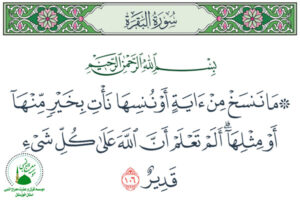 سُورَةُ البَقَرَةِ
بِسْمِ اللَّهِ الرَّحْمَٰنِ الرَّحِيمِ
۞ مَا نَنسَخْ مِنْ ءَايَةٍ أَوْ نُنسِهَا نَأْتِ بِخَيْرٍ مِّنْهَآ
أَوْ مِثْلِهَآ ۗ أَلَمْ تَعْلَمْ أَنَّ ٱللَّهَ عَلَىٰ كُلِّ شَىْءٍ
قَدِيرٌ ١٠٦